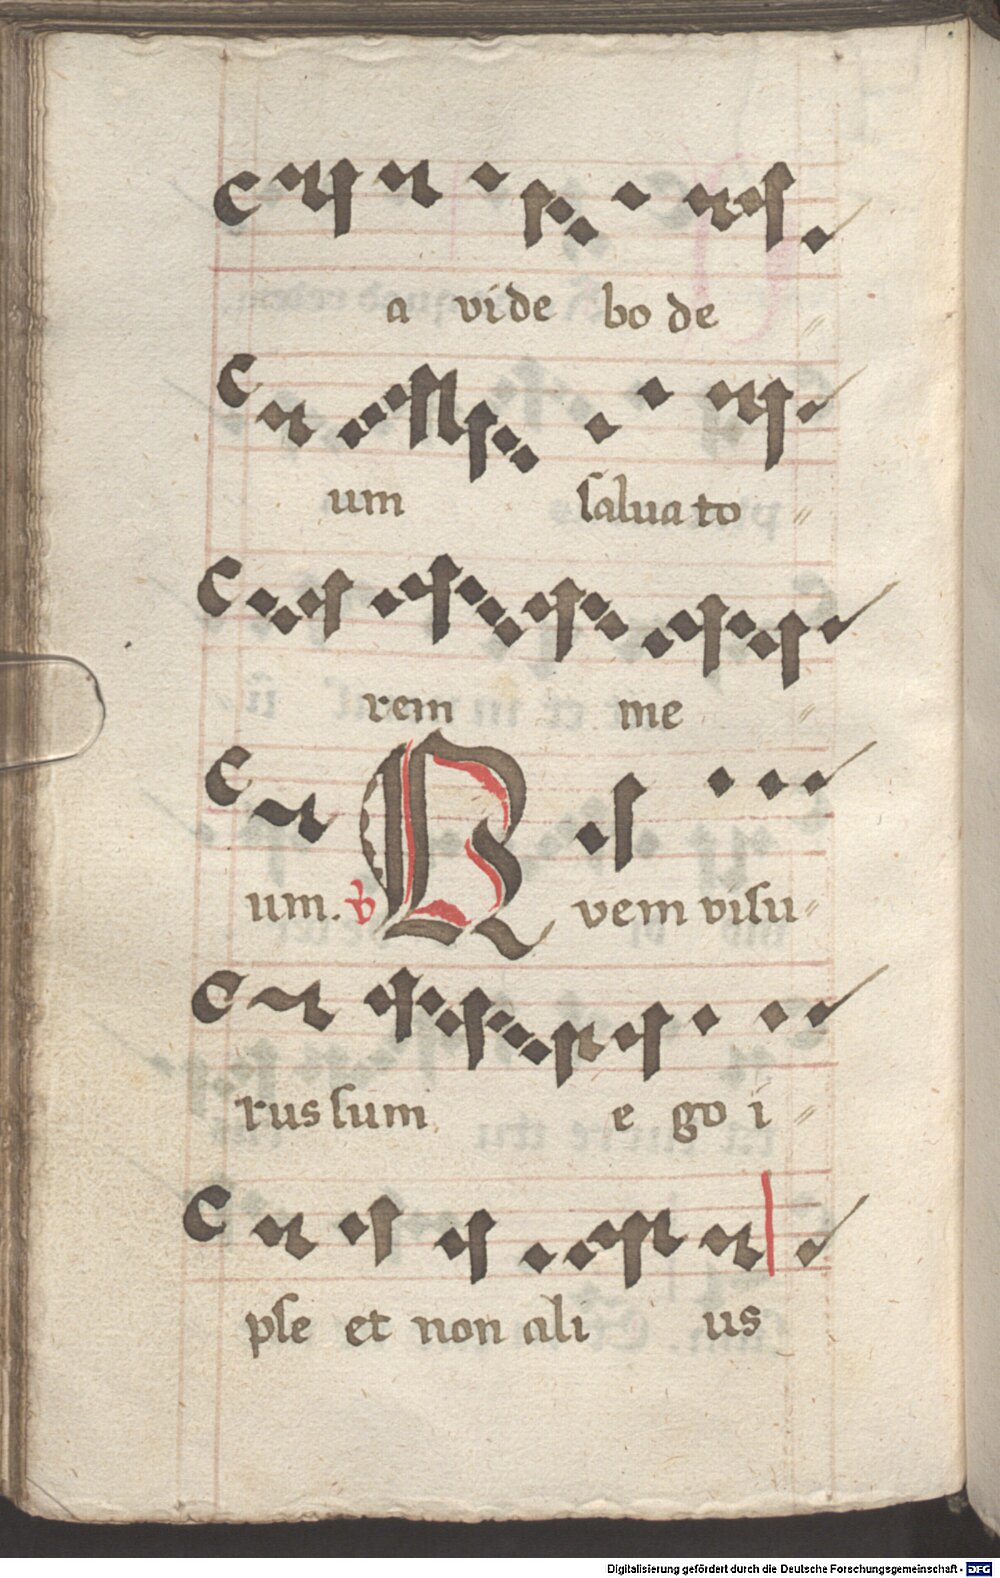 a vide bo de
um saluato
rem me
um. v Quem visu
rus sum e go i
pse et non ali us
Digitalisierung gefördert durch die Deutsche Forschungsgemeinschaft - DFG